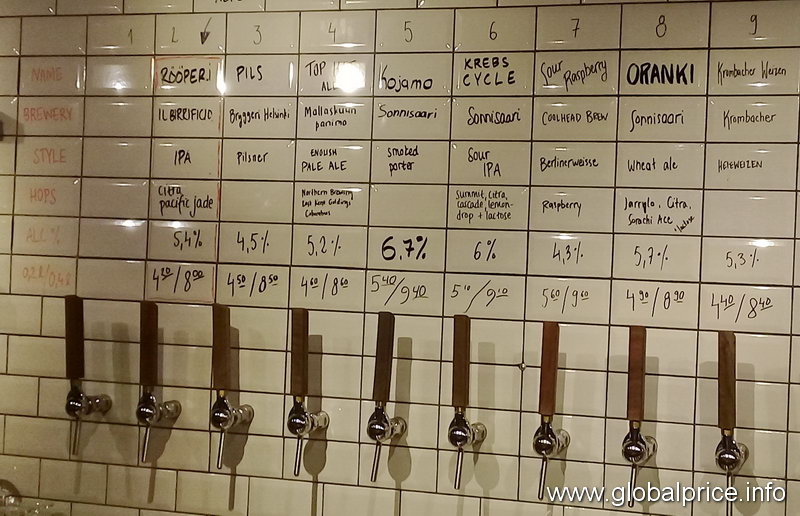 1 2 3 4 5 6 7 8 9
NAME RÖÖPERI PILS TOP Kojamo KREBS Sour ORANKI Krombacher Weizen
ALE CYCLE Raspberry
BREWERY IL BIRRIFICIO Bryggeri Helsinki Mallaskuun Sonnisaari Sonnisaari COOLHEAD BREW Sonnisaari Krombacher
panimo
STYLE IPA Pilsner ENGLISH smoked Sour Berlinerweisse Wheat ale HEFEWEIZEN
PALE ALE porter IPA
HOPS Citra Northern Brewing Summit, citra, Raspberry Jarrylo, Citra,
pacific jade East Kent Goldings cascade, lemon- Sorachi Ace
Columbus drop + lactose
ALC % 5,4% 4,5% 5,2% 6.7% 6% 4,3% 5,7% 5,3%
0,2l/0,4l 420/800 450/850 460/860 540/940 510/910 560/960 490/890 440/840
www.globalprice.info